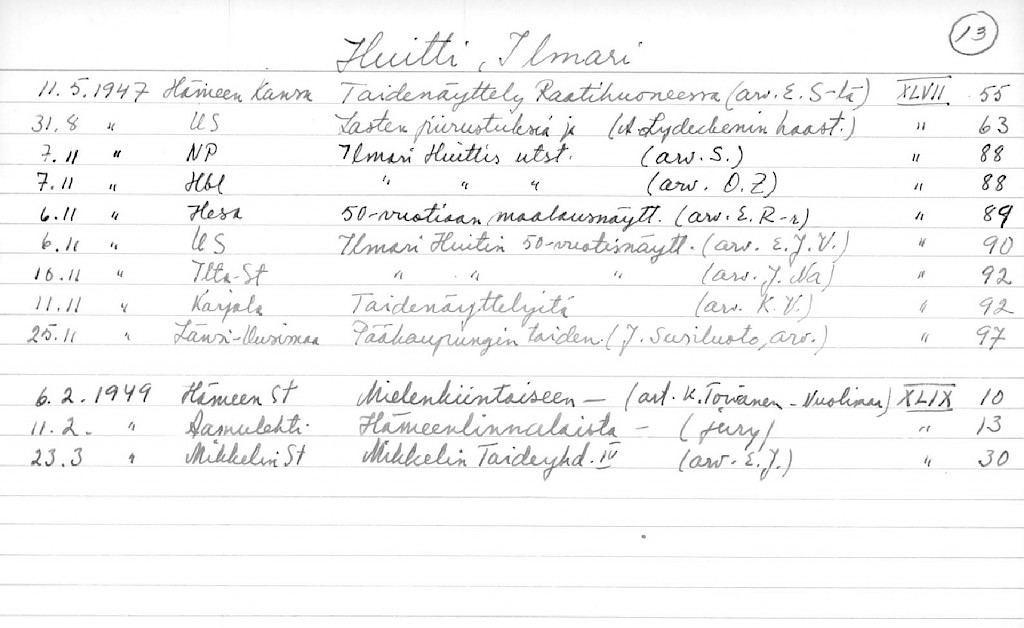 13
Huitti, Ilmari
11.5.1947 Hämeen Kansa Taidenäyttely Raatihuoneessa (arv. E. S-lä) XLVII 55
31.8 " US Lasten piirustuksia ja (A. Lydeckenin haast.) " 63
7.11 " NP Ilmari Huittis utst. (arv. S.) " 88
7.11 " Hbl " " " (arv. O.Z) " 88
6.11 " Hesa 50-vuotiaan maalausnäytt. (arv. E. R-r) " 89
6.11 " US Ilmari Huitin 50-vuotisnäytt. (arv. E.J.V.) " 90
10.11 " Ilta-St " " " (arv. J. Na) " 92
11.11 " Karjala Taidenäyttelyitä (arv. K.V.) " 92
25.11 " Länsi-Uusimaa Pääkaupungin taiden. (J. Susiluoto, arv.) " 97
6.2.1949 Hämeen St Mielenkiintoiseen — (art. K. Toivanen - Vuolimaa) XLIX 10
11.2. " Aamulehti. Hämeenlinnalaista - (jury) " 13
23.3 " Mikkelin St Mikkelin Taideyhd. IV (arv. E.J.) " 30